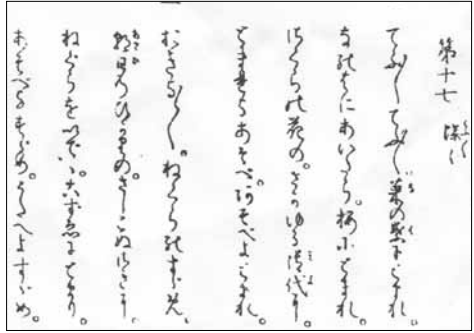 第十七 蝶々
てふ〱てふ〱。菜の葉にとまれ。
なのはにあいたら。桜にとまれ。
さくらの花の。さかゆる御代に。
とまれよあそべ。あそべよとまれ。
おきよ〱。ねぐらのすゞめ。
朝日のひかりの。さしこぬさきに。
ねぐらをいでゝ。こずゑにとまり。
あそべよすゞめ。うたへよすゞめ。